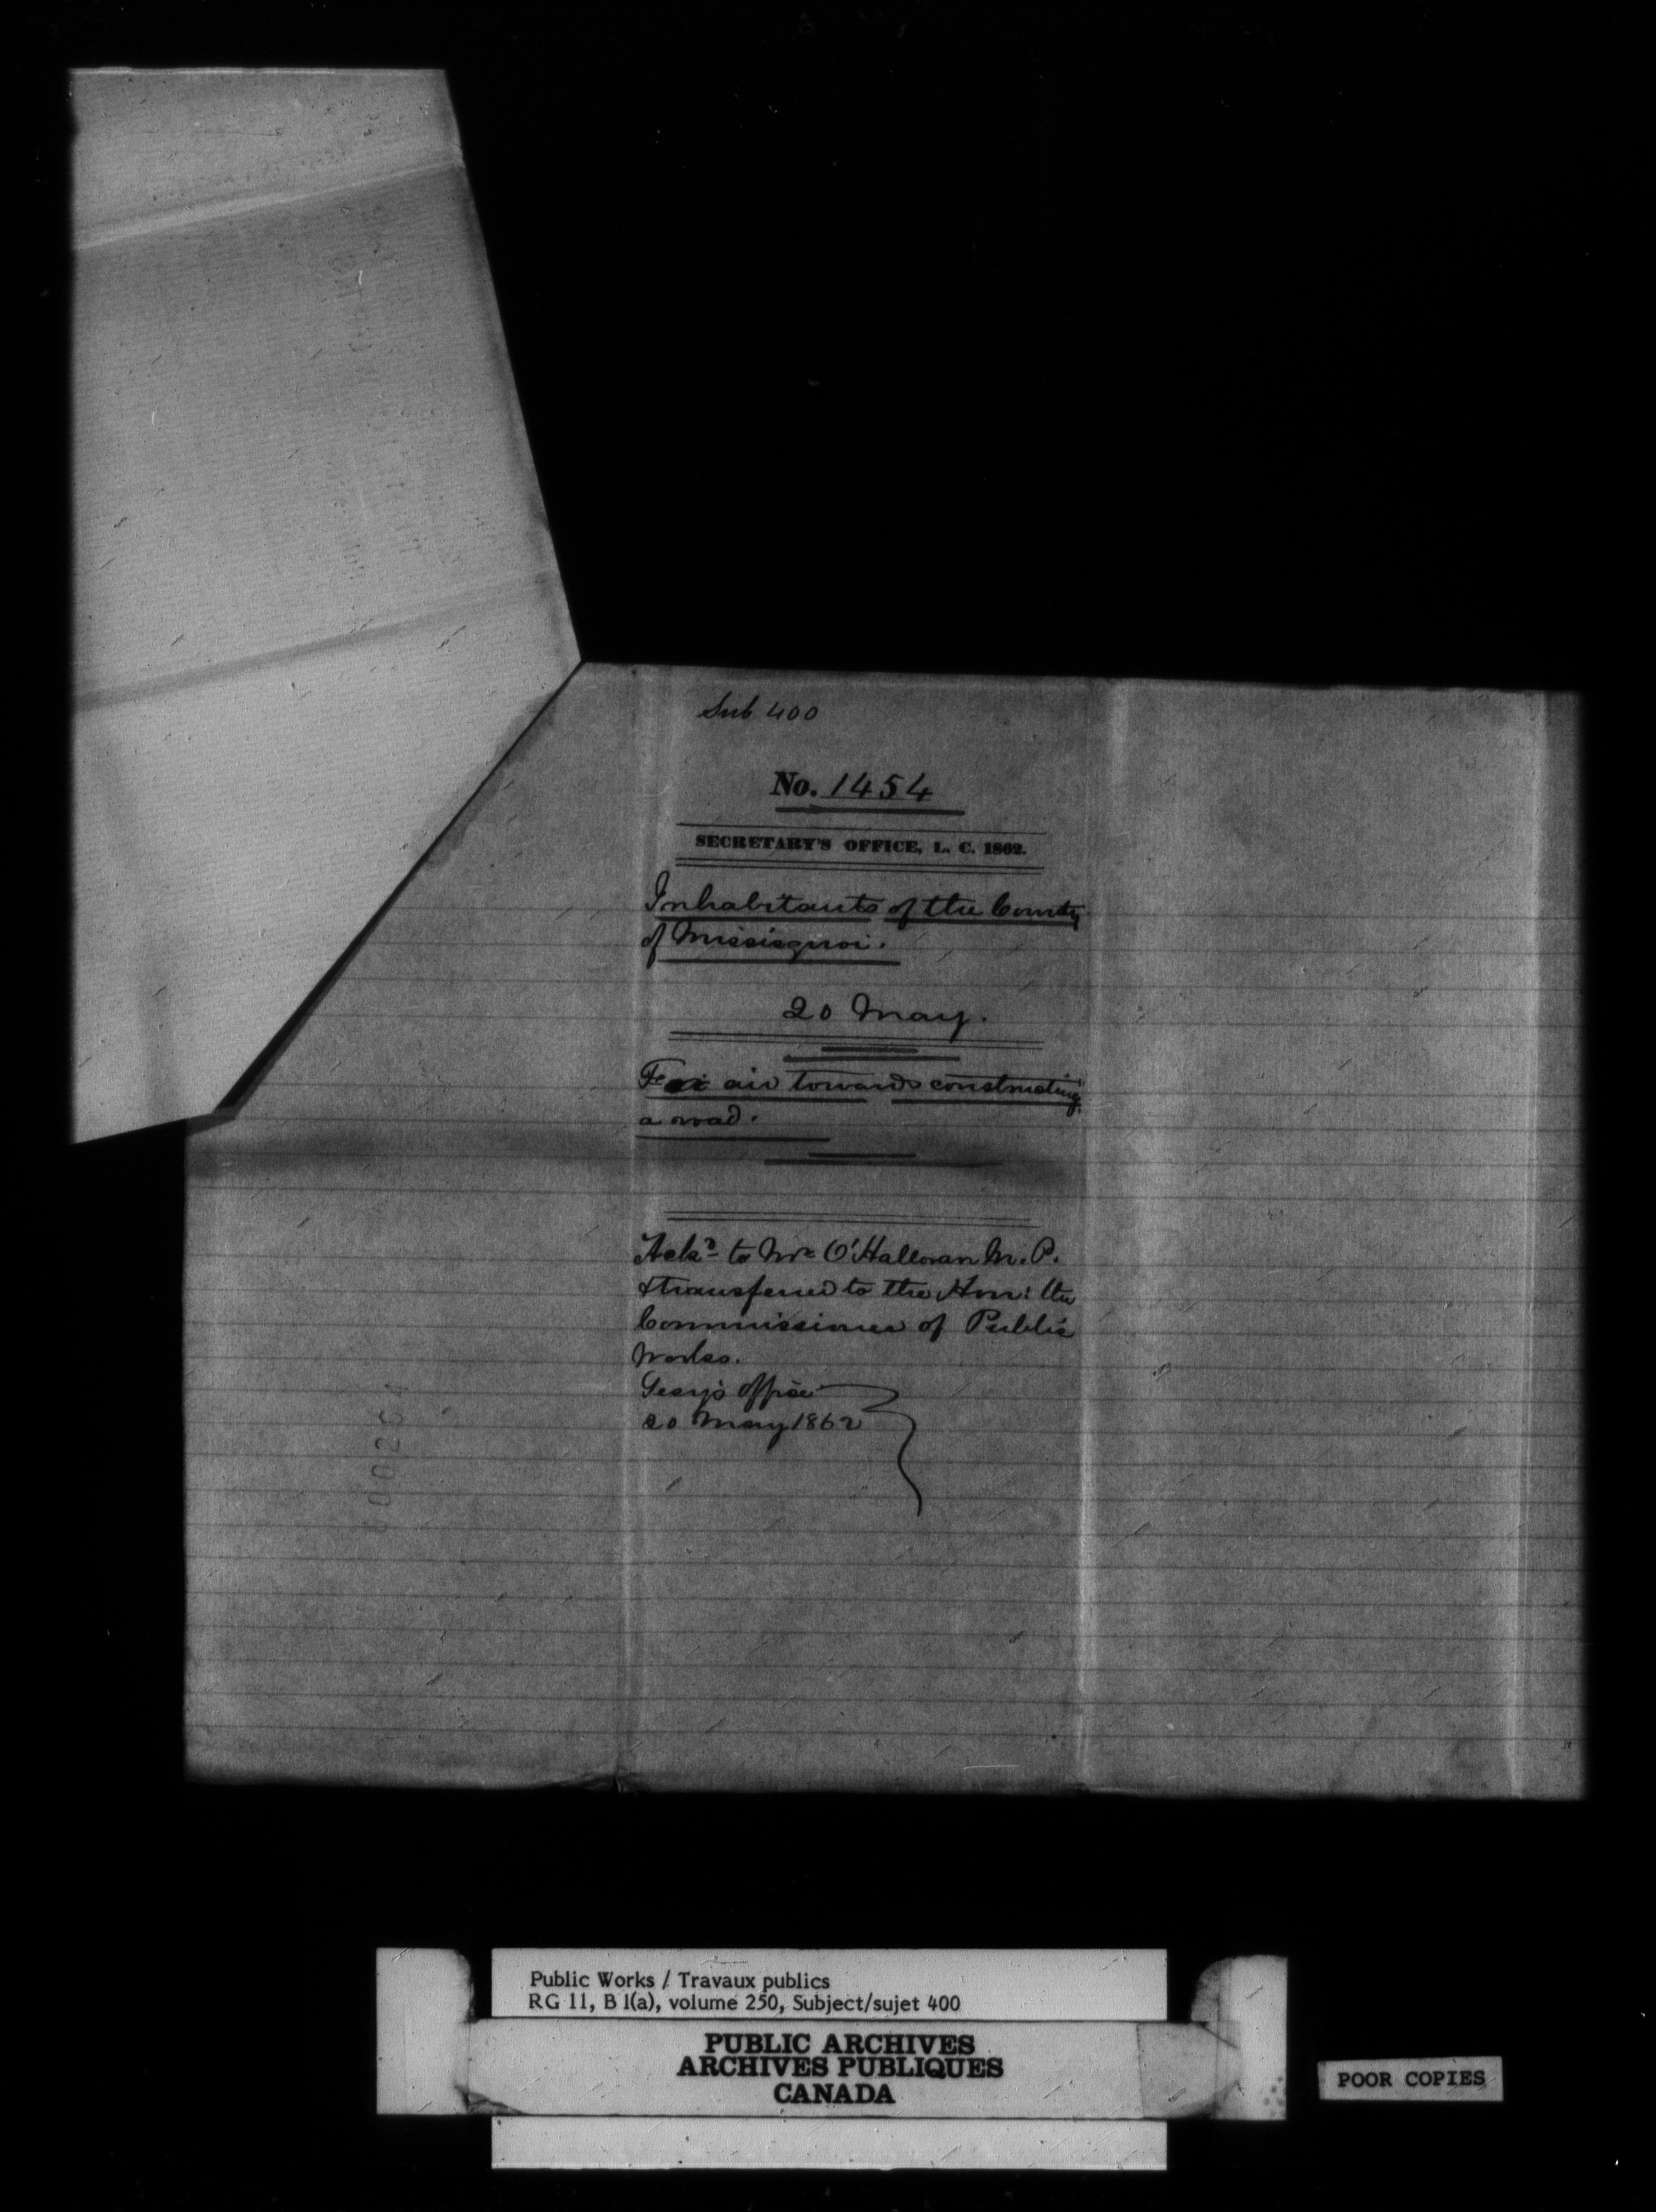 Sub 400
No. 1454
SECRETARY'S OFFICE, L. C. 1862.
Inhabitants of the County
of Missisquoi.
20 May.
For aid towards constructing
a road.
Ackd to Mr O'Halloran M. P.
& transferred to the Hon: the
Commissioner of Public
Works.
Secy's office
20 May 1862
Public Works / Travaux publics
RG 11, B 1(a), volume 250, Subject/sujet 400
PUBLIC ARCHIVES
ARCHIVES PUBLIQUES
CANADA
POOR COPIES